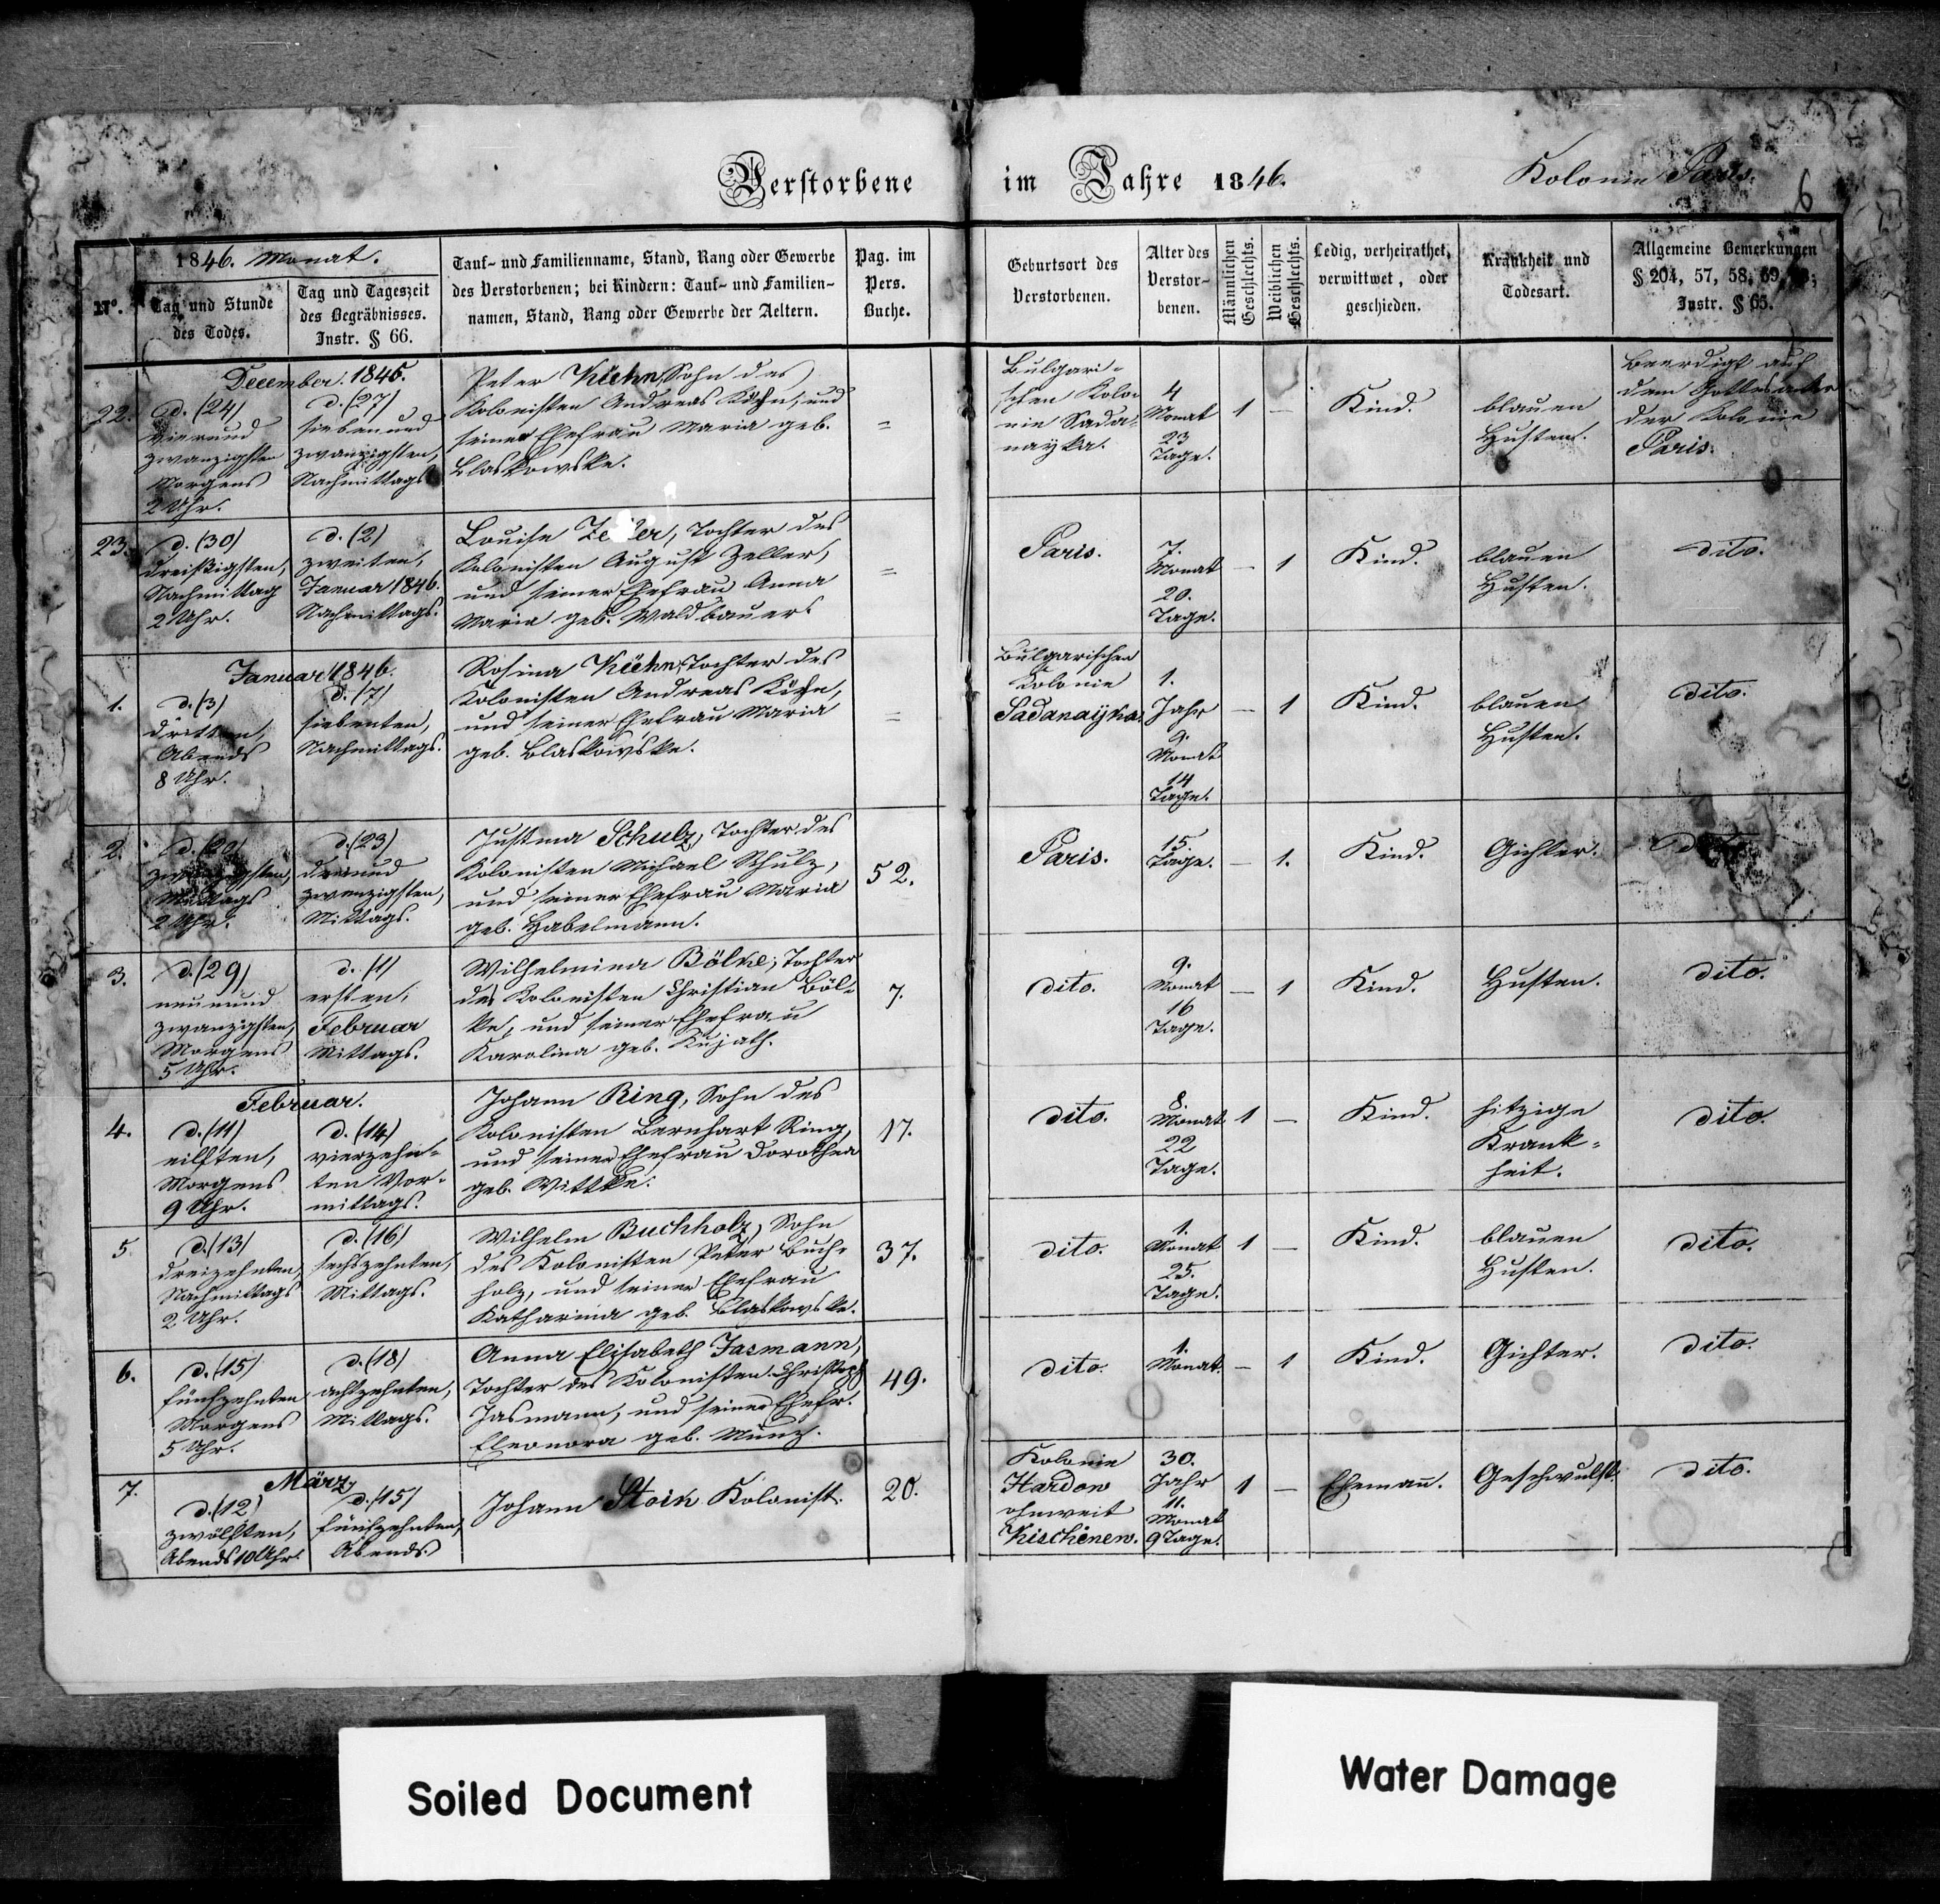 Verstorbene im Jahre 1846. Kolonie Paris.
6
Nº.
1846. Monat.
Tag und Stunde
des Todes.
Tag und Tageszeit
des Begräbnisses.
Instr. § 66.
Tauf- und Familienname, Stand, Rang oder Gewerbe
des Verstorbenen; bei Kindern: Tauf- und Familien-
namen, Stand, Rang oder Gewerbe der Aeltern.
Pag. im
Pers.
Buche.
Geburtsort des
Verstorbenen.
Alter des
Verstor-
benen.
Männlichen
Geschlechts.
Weiblichen
Geschlechts.
Ledig, verheirathet,
verwittwet, oder
geschieden.
Krankheit und
Todesart.
Allgemeine Bemerkungen
§ 204, 57, 58, 69,
Instr. § 65.
December. 1845.
22.
d. (24)
vierund
zwanzigsten
Morgens
2 Uhr.
d. (27)
siebenund
zwanzigsten,
Nachmittags
Peter Kühn, Sohn des
Kolonisten Andreas Kühn, und
seiner Ehefrau Maria geb.
Blaskowske.
=
Bulgari-
schen Kolo-
nie Sada-
nayka.
4
Monat
23
Tage.
1
—
Kind.
blauen
Husten.
Beerdigt auf
dem Gottesacker
der Kolonie
Paris.
23.
d. (30)
dreißigsten,
Nachmittag
2 Uhr.
d. (2)
zweiten,
Januar 1846.
Nachmittags.
Louise Zeller, Tochter des
Kolonisten August Zeller,
und seiner Ehefrau Anna
Maria geb. Waldbauer.
=
Paris.
7.
Monat
20.
Tage.
—
1
Kind.
blauen
Husten.
dito.
Januar 1846.
1.
d. (3)
dritten,
Abends
8 Uhr.
d. (7)
siebenten,
Nachmittags.
Rosina Kühn, Tochter des
Kolonisten Andreas Kühn,
und seiner Ehefrau Maria
geb. Blaskowske.
=
Bulgarischen
Kolonie
Sadanaijka.
1.
Jahr
9.
Monat
14
Tage.
—
1
Kind.
blauen
Husten.
dito.
2.
d. (20)
zwanzigsten,
Mittags
2 Uhr.
d. (23)
dreiund
zwanzigsten,
Mittags.
Justina Schulz, Tochter des
Kolonisten Michael Schulz,
und seiner Ehefrau Maria
geb. Habelmann.
52.
Paris.
15.
Tage.
—
1.
Kind.
Gichter.
3.
d. (29)
neunund
zwanzigsten,
Morgens
5 Uhr.
d. (1)
ersten,
Februar
Mittags.
Wilhelmina Bölke, Tochter
des Kolonisten Christian Böl-
ke, und seiner Ehefrau
Karolina geb. Kujath.
7.
dito.
9.
Monat
16
Tage.
—
1
Kind.
Husten.
dito.
Februar.
4.
d. (11)
eilften,
Morgens
9 Uhr.
d. (14)
vierzehn-
ten Vor-
mittags.
Johann Ring, Sohn des
Kolonisten Bernhart Ring,
und seiner Ehefrau Dorothea
geb. Wittke.
17.
dito.
8.
Monat
22
Tage.
1
—
Kind.
hitzige
Krank-
heit.
dito.
5.
d. (13)
dreizehnten,
Nachmittags
2 Uhr.
d. (16)
sechszehnten,
Mittags.
Wilhelm Buchholz, Sohn
des Kolonisten Peter Buch-
holz, und seiner Ehefrau
Katharina geb. Blaskowske.
37.
dito.
1.
Monat
25.
Tage.
1
—
Kind.
blauen
Husten.
dito.
6.
d. (15)
fünfzehnten
Morgens
5 Uhr.
d. (18)
achtzehnten,
Mittags.
Anna Elisabeth Jasmann,
Tochter des Kolonisten Christoph
Jasmann, und seiner Ehefr.
Eleonora geb. Münz.
49.
dito.
1.
Monat.
—
1
Kind.
Gichter.
dito.
März
7.
d. (12)
zwölften,
Abends 10 Uhr.
d. (15)
fünfzehnten,
Abends.
Johann Stoik Kolonist.
20.
Kolonie
Hardow
ohnweit
Kischenew.
30.
Jahr
11.
Monat
9 Tage.
1
—
Ehemañ.
Geschwulst.
dito.
Soiled Document
Water Damage